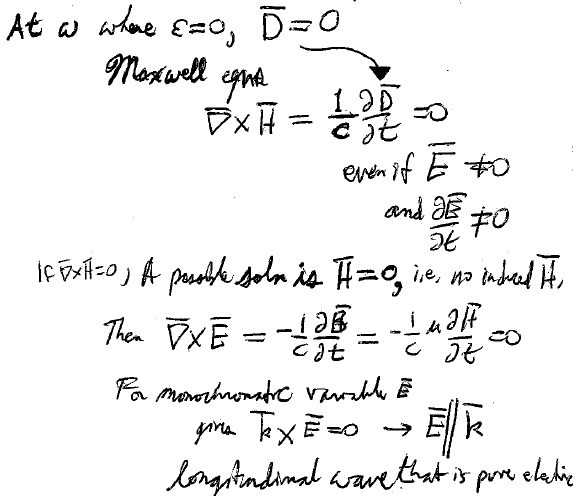 At ω where ε=0, D̅=0
Maxwell eqns
∇̅×H̅ = 1/c ∂D̅/∂t =0
even if E̅ ≠0
and ∂E̅/∂t ≠0
If ∇̅×H̅=0, A possible soln is H̅=0, i.e, no induced H̅,
Then ∇̅×E̅ = -1/c ∂B̅/∂t = -1/c μ ∂H̅/∂t =0
For monochromatic variable E̅
gives k̅×E̅=0 → E̅||k̅
longitudinal wave that is pure electric